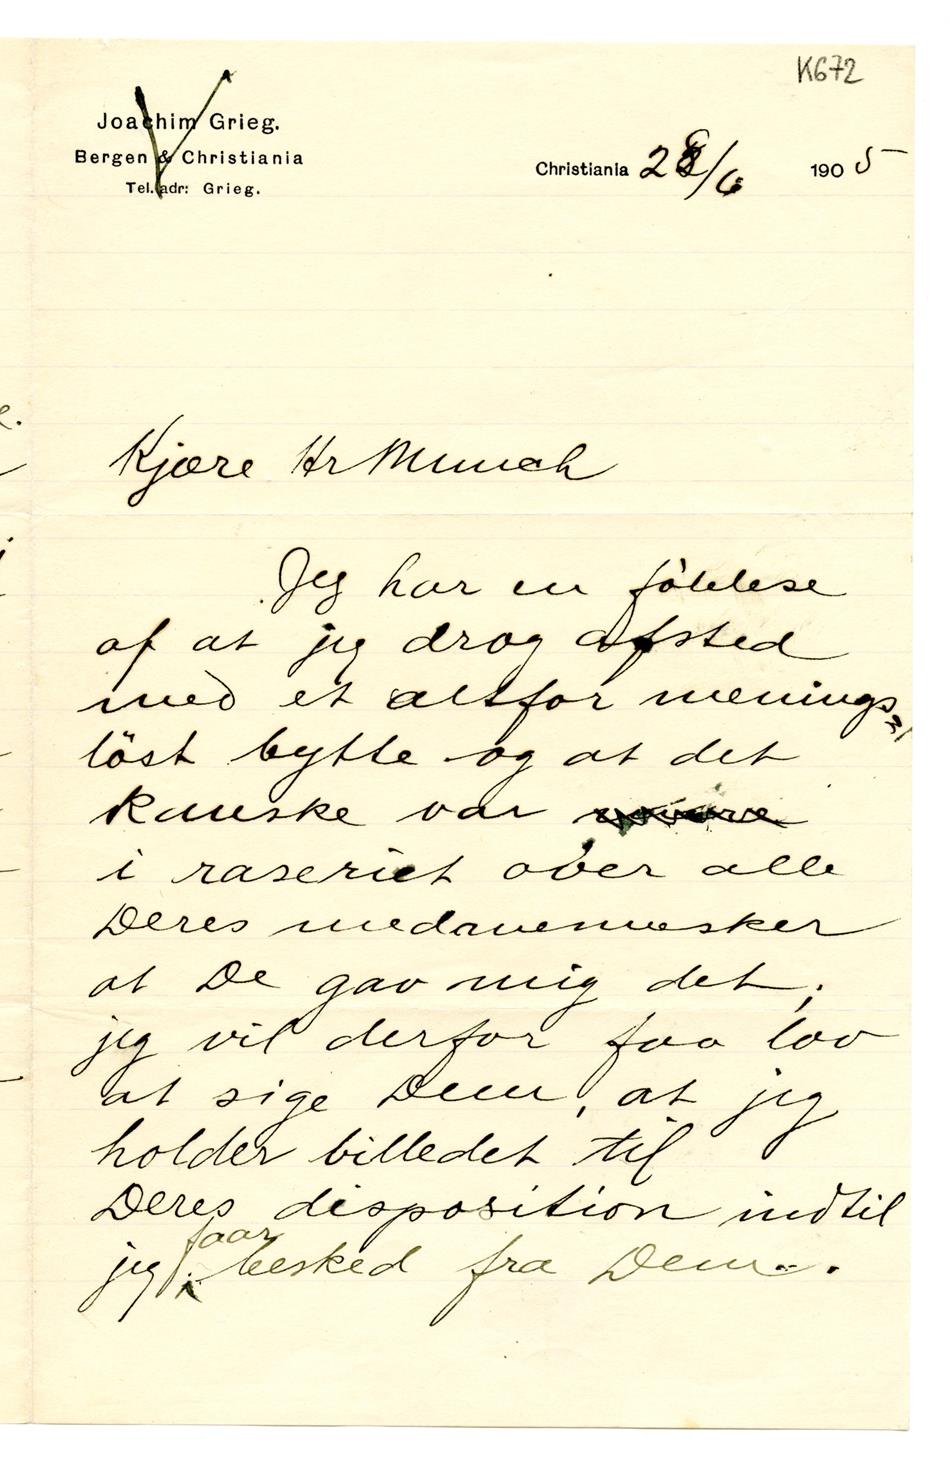 K672
Joachim Grieg.
Bergen & Christiania
Tel. adr: Grieg.
Christiania 28/6 1905
Kjære Hr Munch
Jeg har en følelse
af at jeg drog afsted
med et altfor menings=
løst bytte og at det
kanske var
i raseriet over alle
Deres medmennesker
at De gav mig det;
jeg vil derfor faa lov
at sige Dem, at jeg
holder billedet til
Deres disposition indtil
jeg faar besked fra Dem.